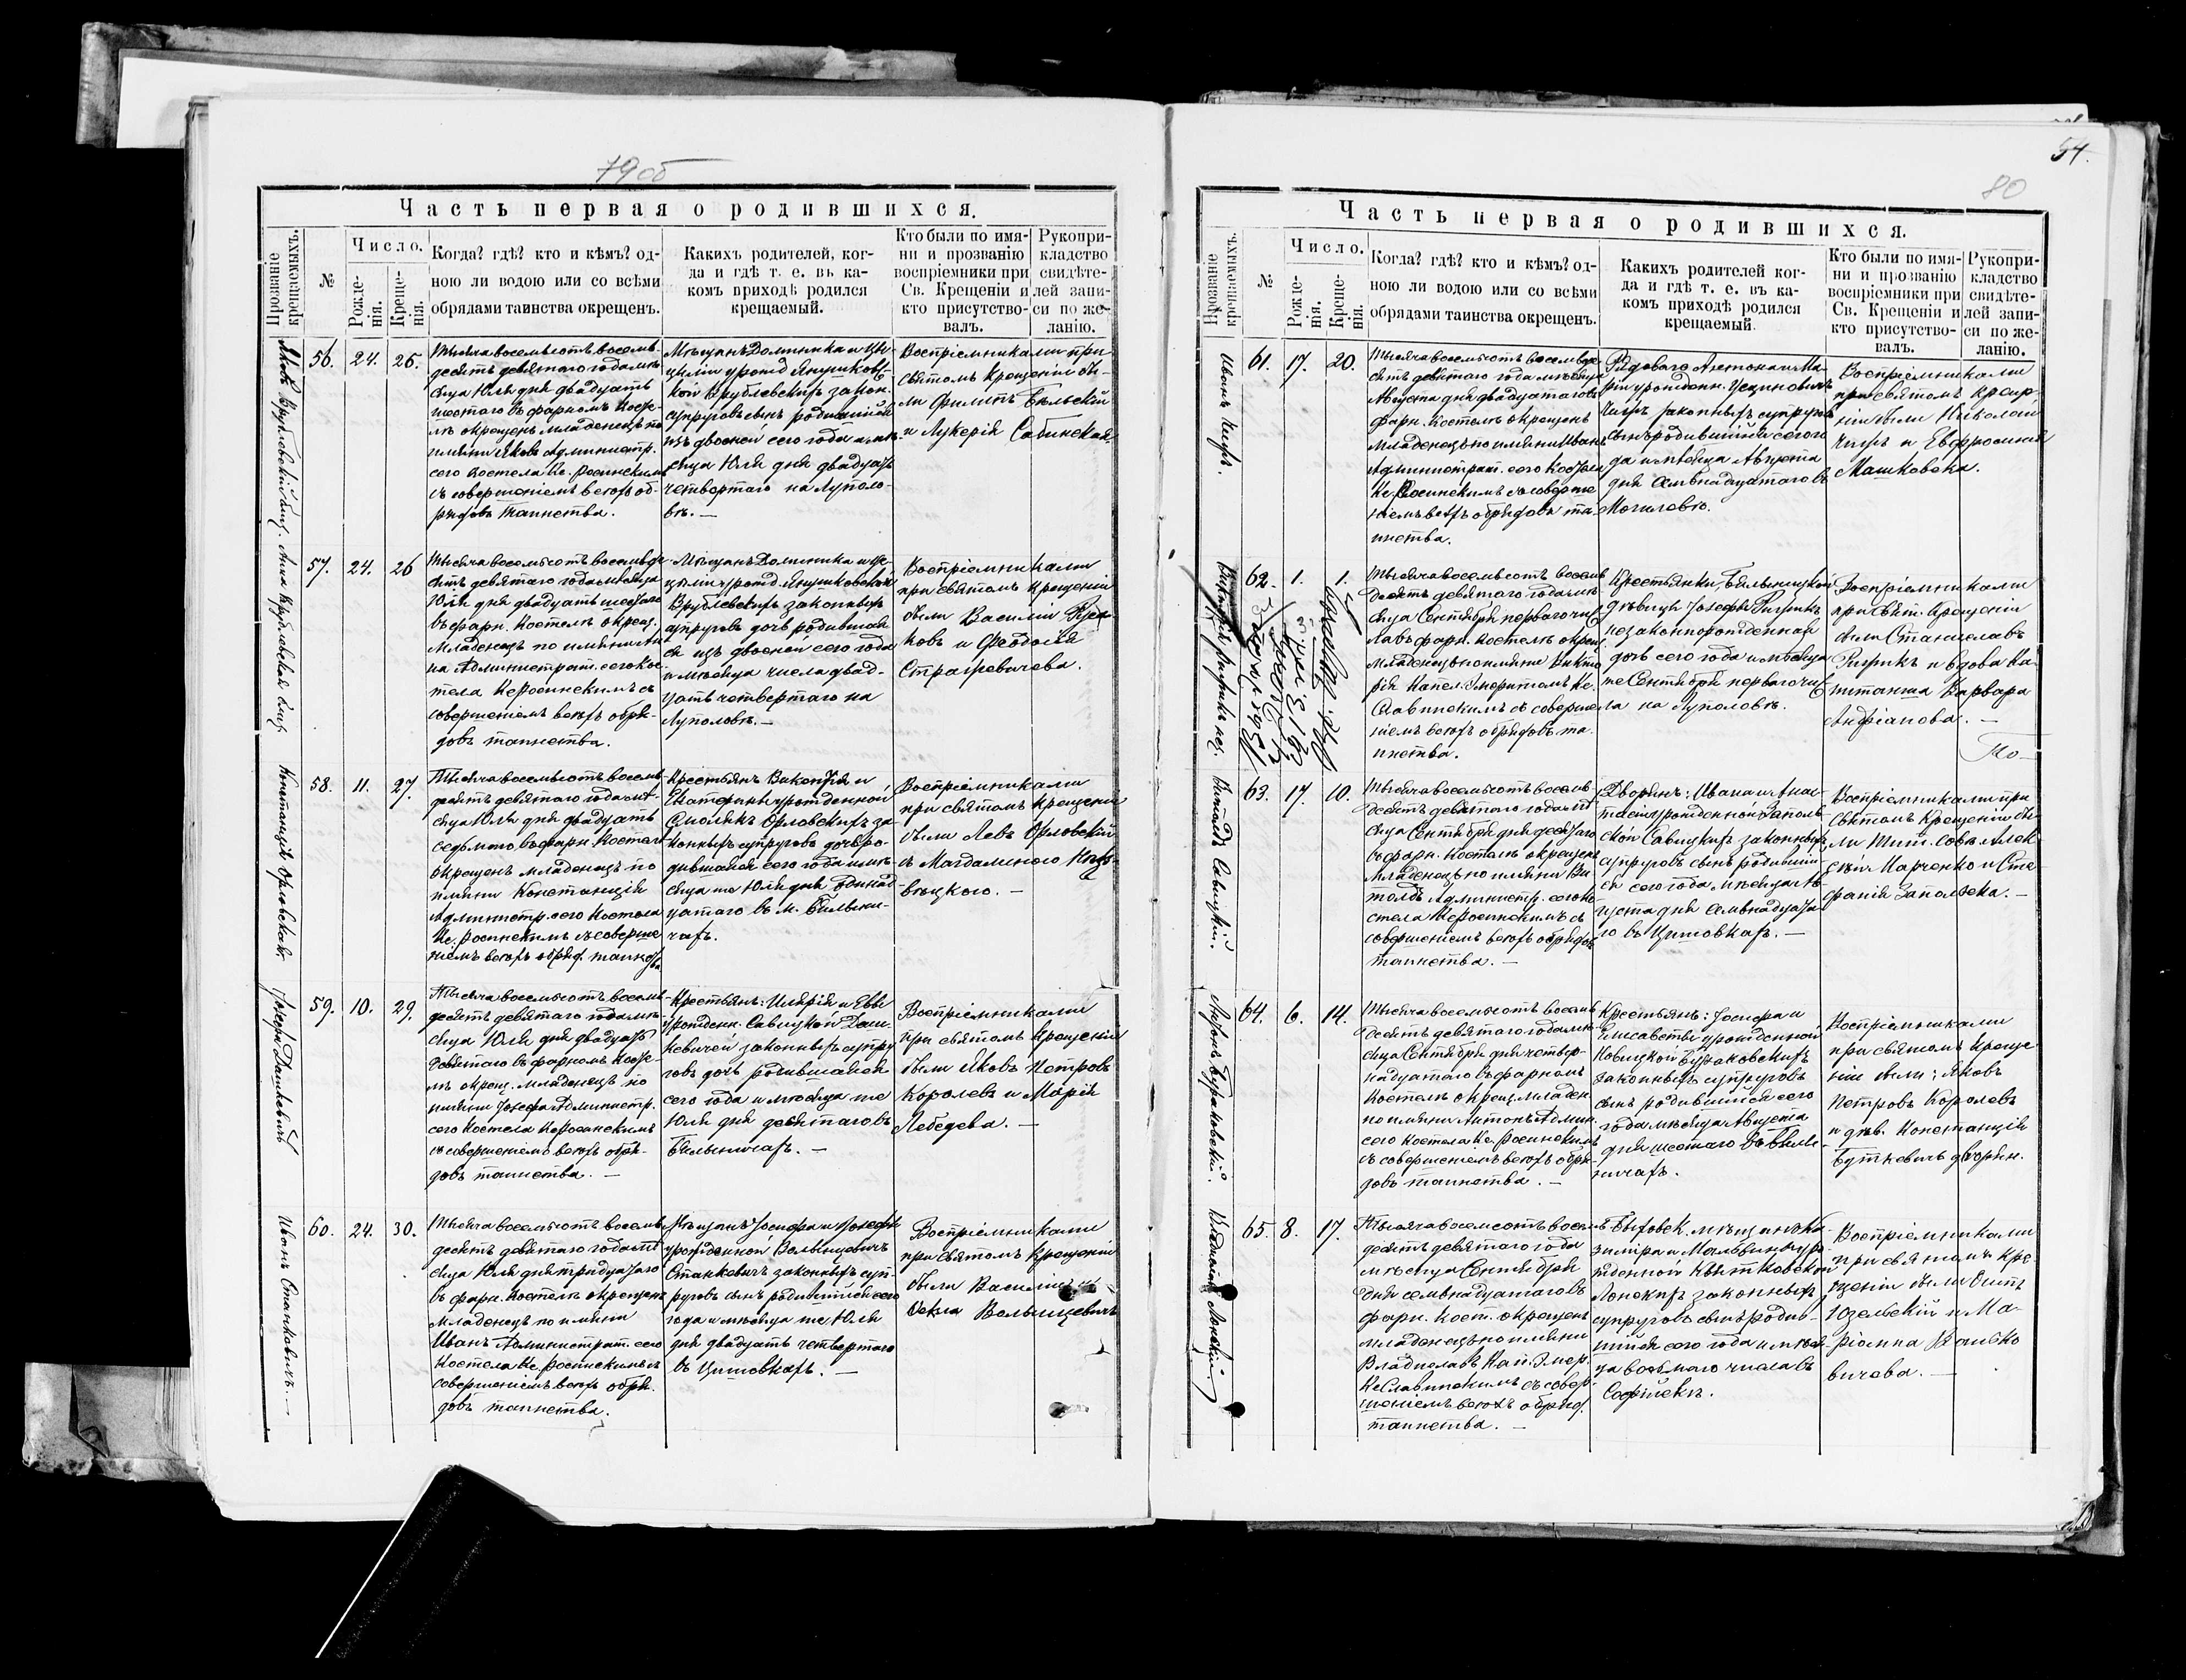 79 об
Часть первая о родившихся.
Прозваніе крещаемыхъ.
№
Число.
Рожде-
нія.
Креще-
нія.
Когда? гдѣ? кто и кѣмъ? од-
ною ли водою или со всѣми
обрядами таинства окрещенъ.
Какихъ родителей, ког-
да и гдѣ т. е. въ ка-
комъ приходѣ родился
крещаемый.
Кто были по имя-
ни и прозванію
воспріемники при
Св. Крещеніи и
кто присутство-
валъ.
Рукопри-
кладство
свидѣте-
лей запи-
си по же-
ланію.
Яковъ Врублевскій близ.
56. 24. 26.
Тысяча восемьсотъ восемь-
десятъ девятаго года мѣ-
сяца Юля дня двадцать
шестаго въ фарномъ косте-
лѣ окрещенъ младенецъ по
имяни Яковъ Администр.
сего костела Кс. Росинскимъ
съ совершеніемъ всѣхъ об-
рядовъ таинства.
Мѣщанъ Доминика и Це-
циліи урожд. Янушковс-
кой Врублевскихъ закон.
супруговъ сынъ родившійся
изъ двойней сего года и мѣ-
сяца Юля дня двадцать
четвертаго на Луполо-
вѣ. —
Воспріемниками при
Святомъ Крещеніи бы-
ли Филипъ Бѣльскій
и Лукерія Сабинская
Анна Врублевская близ.
57. 24. 26
Тысяча восемьсотъ восемьде-
сятъ девятаго года мѣсяца
Юля дня двадцать шестаго
въ фарн. костелѣ окрещ.
младенецъ по имяни Ан-
на Администрат. сего кос-
тела Кс Росинскимъ съ
совершеніемъ всѣхъ обря-
довъ таинства.
Мѣщанъ Доминика и Це-
циліи урожд. Янушковской
Врублевскихъ законныхъ
супруговъ дочь родившая
ся изъ двойней сего года
и мѣсяца числа двад-
цать четвертаго на
Луполовѣ. —
Воспріемниками
при святомъ Крещеніи
были Василій
ковъ и Феодосія
Стражевичева.
Констанція Орловская
58. 11. 27.
Тысяча восемьсотъ восемь-
десятъ девятаго года мѣ-
сяца Юля дня двадцать
седьмаго въ фарн. Костелѣ
окрещенъ младенецъ по
имяни Констанція
Администр. сего Костела
Кс. Росинскимъ съ соверше
ніемъ всѣхъ обряд. таинства
Крестьянъ Викентія и
Екатерины урожденной
Смолякъ Орловскихъ за-
конныхъ супруговъ дочь ро-
дившаяся сего года и мѣ-
сяца же Юля дня одинад
цатаго въ м. Бѣлыни-
чахъ.
Воспріемниками
при святомъ Крещеніи
были Левъ Орловскій
съ Магдаленою
вѣцкою. —
Іосефа Дашкевичъ
59. 10. 29.
Тысяча восемьсотъ восемь-
десятъ девятаго года мѣ-
сяца Юля дня двадцать
девятаго въ фарномъ косте-
лѣ окрещ. младенецъ по
имяни Іосефа Администр.
сего Костела Кс Росинскимъ
съ совершеніемъ всѣхъ обря-
довъ таинства. —
Крестьянъ: Иларія и Евы
урожденн. Савицкой Даш-
кевичей законныхъ супру
говъ дочь родившаяся
сего года и мѣсяца же
Юля дня десятаго въ
Бѣлыничахъ. —
Воспріемниками
при святомъ Крещеніи
были Яковъ Петровъ
Королевъ и Марія
Лебедева. —
Иванъ Станкевичъ. —
60. 24. 30.
Тысяча восемьсотъ восемь-
десятъ девятаго года мѣ-
сяца Юля дня тридцатаго
въ фарн. Костелѣ окрещенъ
младенецъ по имяни
Иванъ Администрат. сего
Костела Кс. Росинскимъ съ
совершеніемъ всѣхъ обря-
довъ таинства.
Мѣщанъ Іосифа и Іозефы
урожденной Велынцевичъ
Станкевичъ законныхъ суп-
руговъ сынъ родившійся сего
года и мѣсяца же Юля
дня двадцать четвертаго
въ Цишовкахъ. —
Воспріемниками
при святомъ Крещеніи
были Василій
Фекла Велынцевичъ
54.
80
Часть первая о родившихся.
Прозваніе крещаемыхъ.
№
Число.
Рожде-
нія.
Креще-
нія.
Когда? гдѣ? кто и кѣмъ? од-
ною ли водою или со всѣми
обрядами таинства окрещенъ.
Какихъ родителей ког-
да и гдѣ т. е. въ ка-
комъ приходѣ родился
крещаемый.
Кто были по имя-
ни и прозванію
воспріемники при
Св. Крещеніи и
кто присутство-
валъ.
Рукопри-
кладство
свидѣте-
лей запи-
си по же-
ланію.
Иванъ Чигръ.
61. 17. 20.
Тысяча восемьсотъ восемьде-
сятъ девятаго года мѣсяца
Августа дня двадцатаго въ
фарн. Костелѣ окрещенъ
Младенецъ по имяни Иванъ
Администрат. сего Костела
Кс. Росинскимъ съ соверше
ніемъ всѣхъ обрядовъ та-
инства.
Рядоваго Антона и Ма-
ріи урожденн.
Чигръ законныхъ супруговъ
сынъ родившійся сего го
да и мѣсяца Августа
дня семьнадцатаго въ
Могилевѣ.
Воспріемниками
при святомъ Креще-
ніи были Николай
Чигръ и Евфросинія
Машковска.
62. 1. 1.
Тысяча восемьсотъ восемь
десятъ девятаго года мѣ-
сяца Сентября перваго чис-
ла въ фарн. костелѣ окрещ.
младенецъ по имяни Викто
рія Капел. Эмеритомъ Кс.
Славинскимъ съ соверше
ніемъ всѣхъ обрядовъ та-
инства.
Крестьянки, Бялыницкой
дѣвицы Іосефы
незаконнорожденная
дочь сего года и мѣсяца
же Сентября перваго чис-
ла на Луполовѣ.
Воспріемниками
при Свят. Крещеніи
были Станиславъ
и вдова Ка-
питанша Варвара
Андріанова. —
То-
Витольдъ Савицкій.
63. 17. 10.
Тысяча восемьсотъ восемь-
десятъ девятаго года мѣ
сяца Сентября дня десятаго
въ фарн. Костелѣ окрещенъ
Младенецъ по имяни Ви-
тольдъ Администр. сего Ко
стела Кс Росинскимъ съ
совершеніемъ всѣхъ обрядовъ
таинства. —
Дворянъ: Ивана и Анас-
тасіи урожденной Заполь-
ской Савицкихъ законныхъ
супруговъ сынъ родившій-
ся сего года мѣсяца Ав-
густа дня семьнадцата-
го въ Цишовкахъ. —
Воспріемниками при
Святомъ Крещеніи бы-
ли Тит. Сов. Алек
сѣй Марченко и Сте-
фанія Запольска. —
Антонъ Бураковскій.
64. 6. 14.
Тысяча восемьсотъ восемь
десятъ девятаго года мѣ-
сяца Сентября дня четвер-
надцатаго въ фарномъ
Костелѣ окрещ. младен.
по имяни Антонъ Админ.
сего Костела Кс. Росинскимъ
съ совершеніемъ всѣхъ обря-
довъ таинства. —
Крестьянъ: Іосифа и
Елисаветы урожденной
Новицкой Бураковскихъ
законныхъ супруговъ
сынъ родившійся сего
года мѣсяца Августа
дня шестаго въ Бѣлы-
ничахъ.
Воспріемниками
при святомъ Креще
ніи были: Яковъ
Петровъ Королевъ
и дѣв. Констанція
Буткевичъ дворян.
65. 8. 17.
Тысяча восемсотъ восемь-
десятъ девятаго года
мѣсяца Сентября
дня семьнадцатаго въ
фарн. Кост. окрещенъ
младенецъ по имяни
Владиславъ Кап. Эмер.
Кс Славинскимъ съ совер-
шеніемъ всѣхъ обряд.
таинства. —
Быховск. мѣщанъ Ка-
зимира и Мальвины уро-
жденной
законныхъ
супруговъ сынъ родив-
шійся сего года и мѣся-
ца восьмаго числа въ
Софійскѣ.
Воспріемниками
при святомъ Кре-
щеніи были Осипъ
и Ма-
ріанна
вичева. —